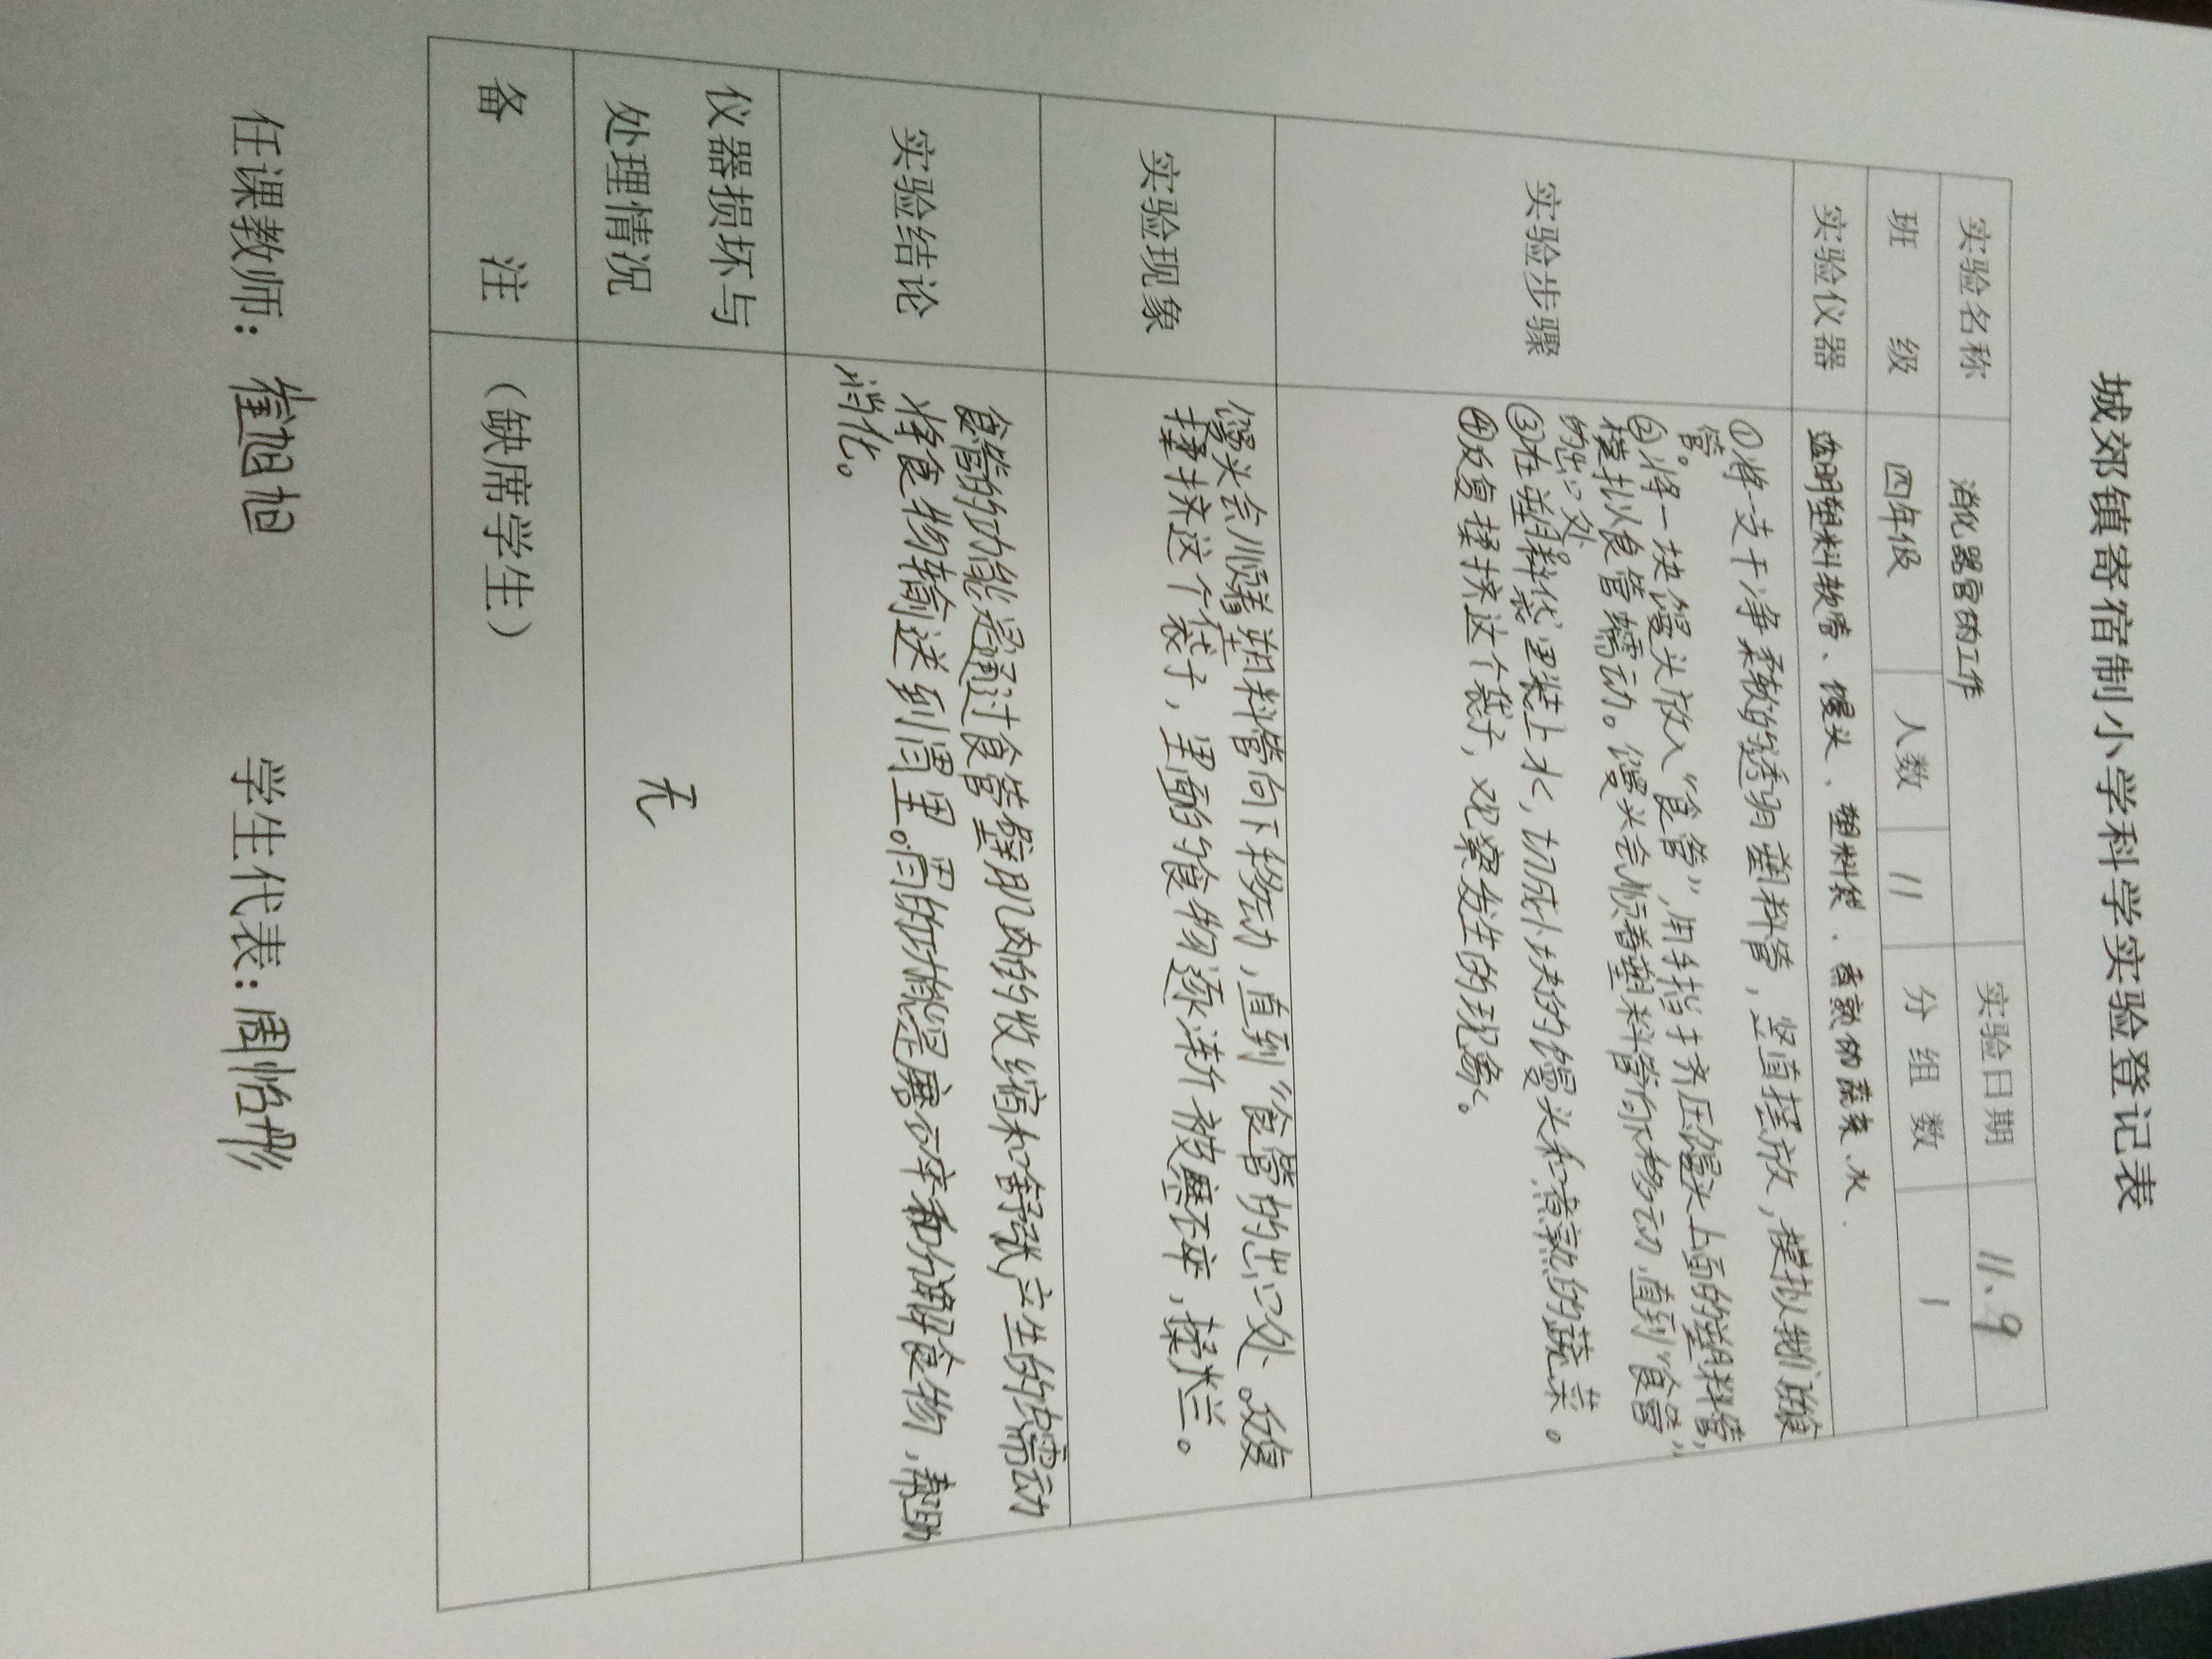 城郊镇寄宿制小学科学实验登记表
实验名称 消化器官的工作 实验日期 11、9
班 级 四年级 人数 11 分组数 1
实验仪器 透明塑料软管、馒头、塑料袋、煮熟的蔬菜、水.
实验步骤
①将一支干净柔软的透明塑料管,竖直摆放,模拟制
管。
②将一块馒头放入“食管”,用手指挤压馒头上面的塑料管,
模拟食管蠕动。馒头会顺着塑料管向下移动,直到“食管”
的出口处
③在塑料袋里装上水,切成小块的馒头和煮熟的蔬菜。
④反复揉挤这个袋子,观察发生的现象。
实验现象
馒头会顺着塑料管向下移动,直到“食管的出口处。反复
揉挤这个袋子,里面的食物逐渐被磨碎,揉烂。
实验结论
食管的功能是通过食管壁肌肉的收缩和舒张产生的蠕动
将食物输送到胃里。胃的功能是磨碎和分解食物,帮助
消化。
仪器损坏与
处理情况
无
备 注 (缺席学生)
任课教师: 崔旭旭 学生代表: 周怡彤